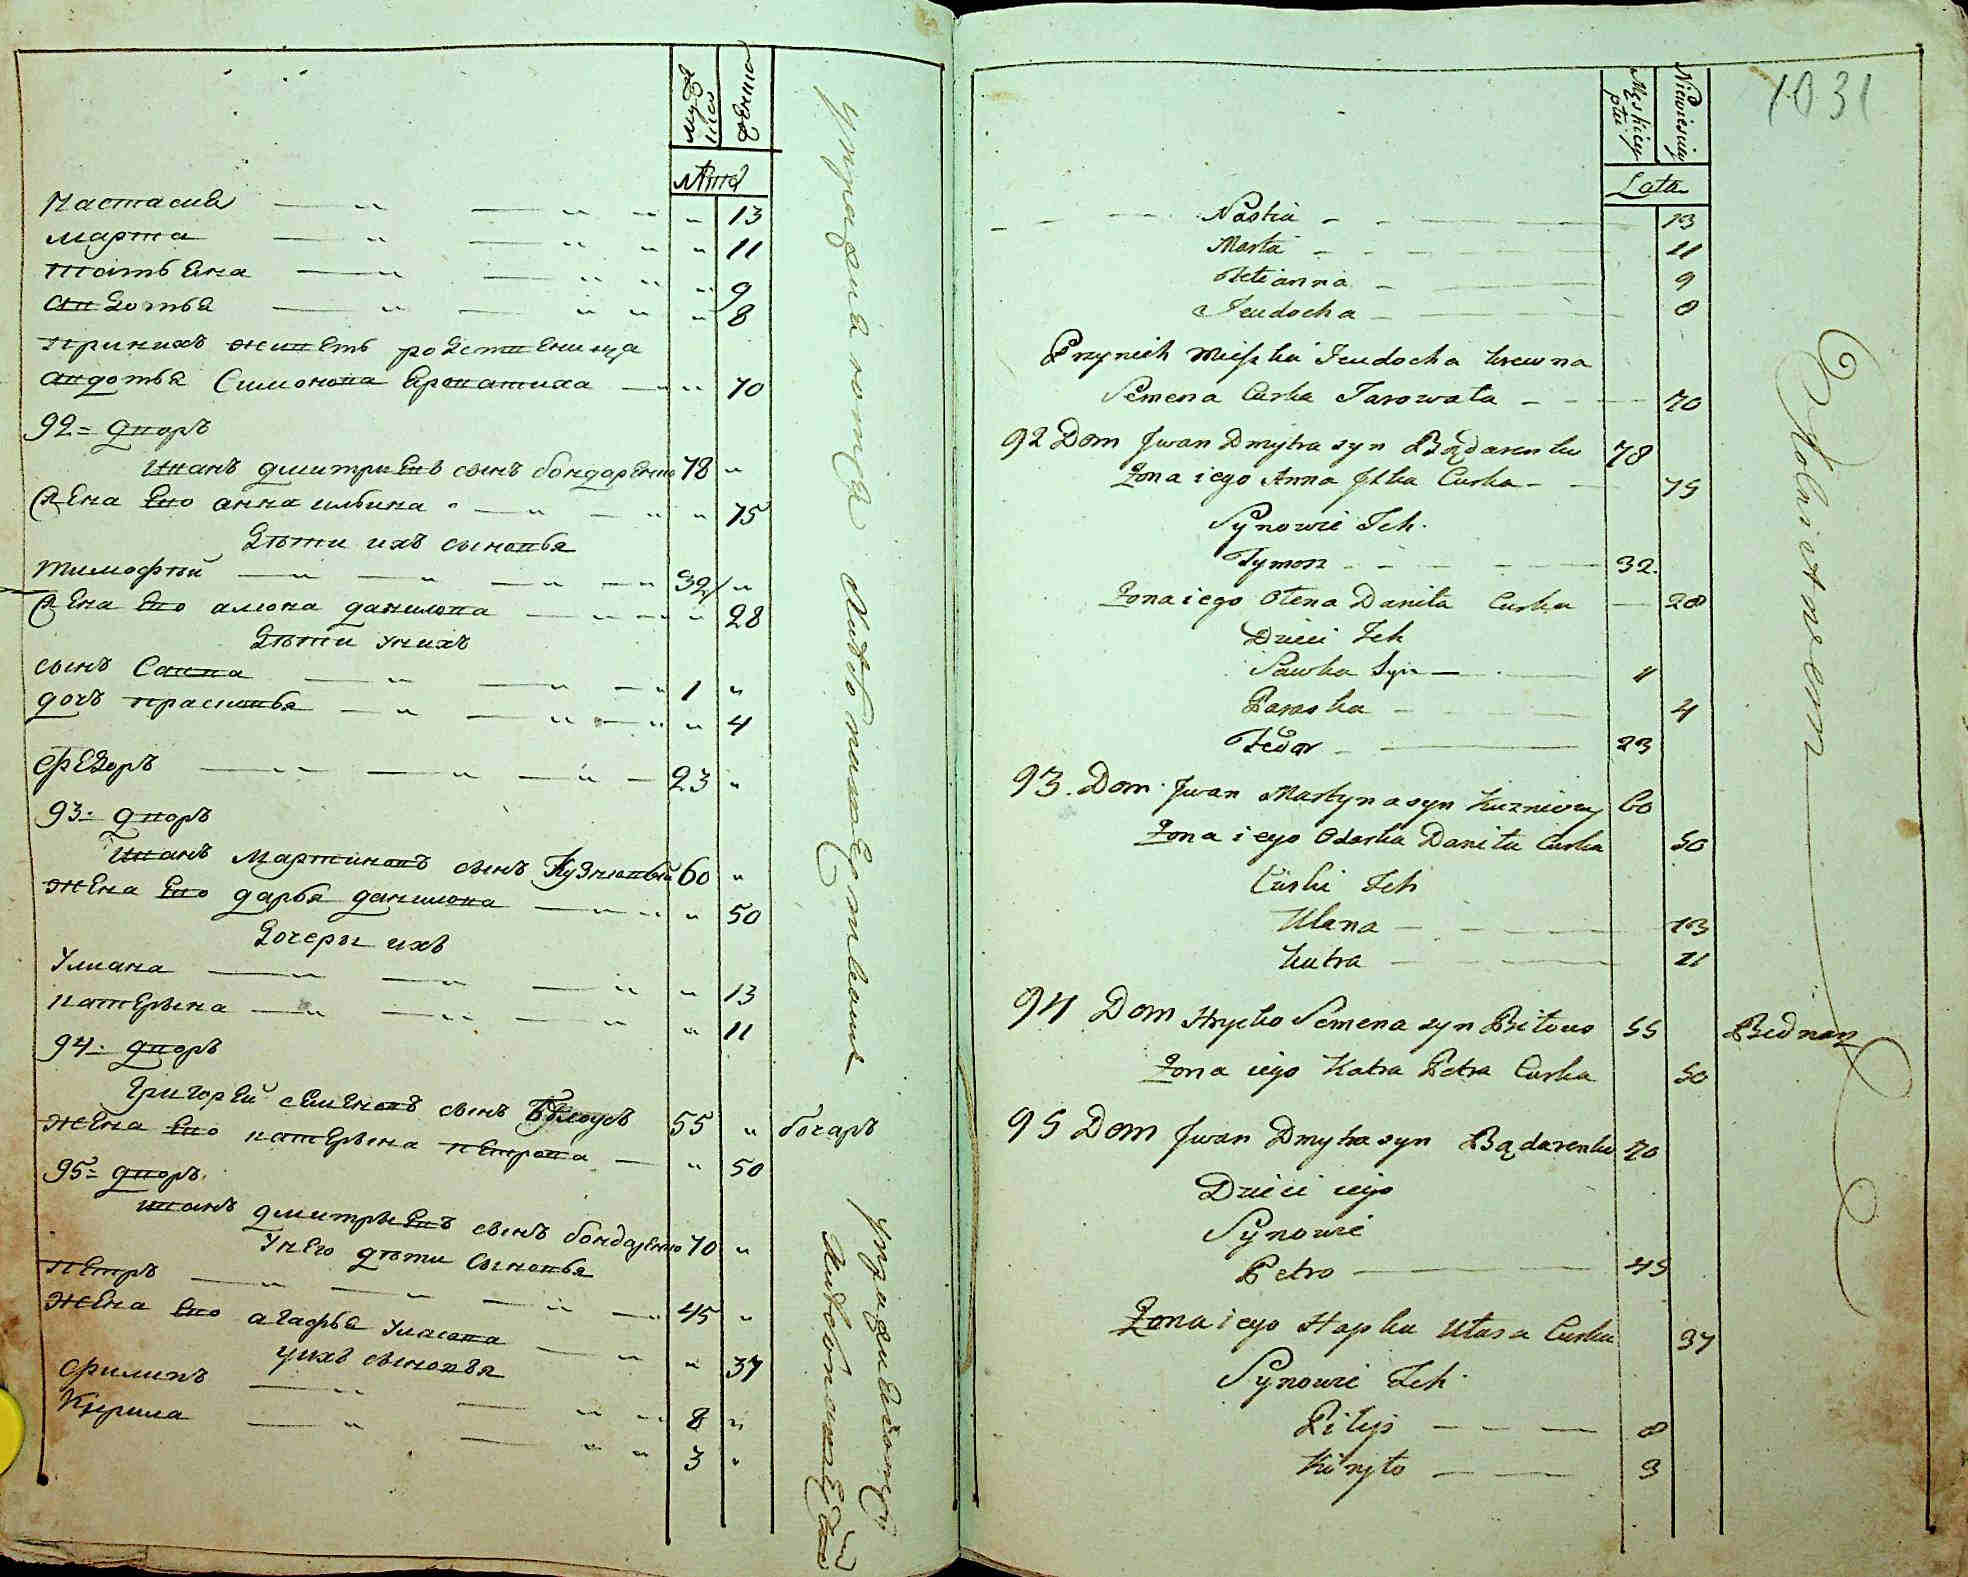 мужеска женска
лѣта
Настасия 13
Марта 11
татьяна 9
авдотья 8
при нихъ живетъ родственица
авдотья Симонова 70
92= дворъ
иванъ дмитриевъ сынъ бондаренко 78
жена ево анна ильина 75
дѣти ихъ сыновья
тимофѣй 32
жена ево алюна данилова 28
дѣти у нихъ
сынъ Савва 1
дочъ прасковья 4
федоръ 23
93= дворъ
иванъ мартиновъ сынъ 60
жена ево дарья данилова 50
дочеры ихъ
Улиана 13
катерына 11
94= дворъ
григорей семеновъ сынъ бѣлоусъ 55 бочаръ
жена ево катерына петрова 50
95= дворъ
иванъ дмитрыевъ сынъ бондаренко 70
у него дѣти сыновья
петръ 45
жена ево агафья Уласова 37
у ихъ сыновья
филипъ 8
Кирила 3
1031
Lata
Nastia 13
Marta 11
Tetianna 9
Jeudocha 8
Przynich Mieszka Jeudocha krewna
Semena Curka 70
92 Dom Jwan Dmytra syn Bądarenko 78
Zona iego Anna Jlka Curka 75
Synowie Ich
Tymosz 32
Zona iego Olena Daniła Curka 28
Dzieci Ich
Sawka Syn 1
Paraska 4
Fedor 23
93. Dom Jwan Martyna syn 60
Zona iego Odarka Daniła Curka 50
Curki Ich
Ulana 13
Kutra 11
94 Dom Hrycko Semena syn Biłous 55 Bednarz
Zona iego Katra Petra Curka 50
95 Dom Jwan Dmytra syn Bądarenko 70
Dzieci iego
Synowie
Petro 45
Zona iego Hapka Ułasa Curka 37
Synowie Ich
Pilip 8
Kiryło 3